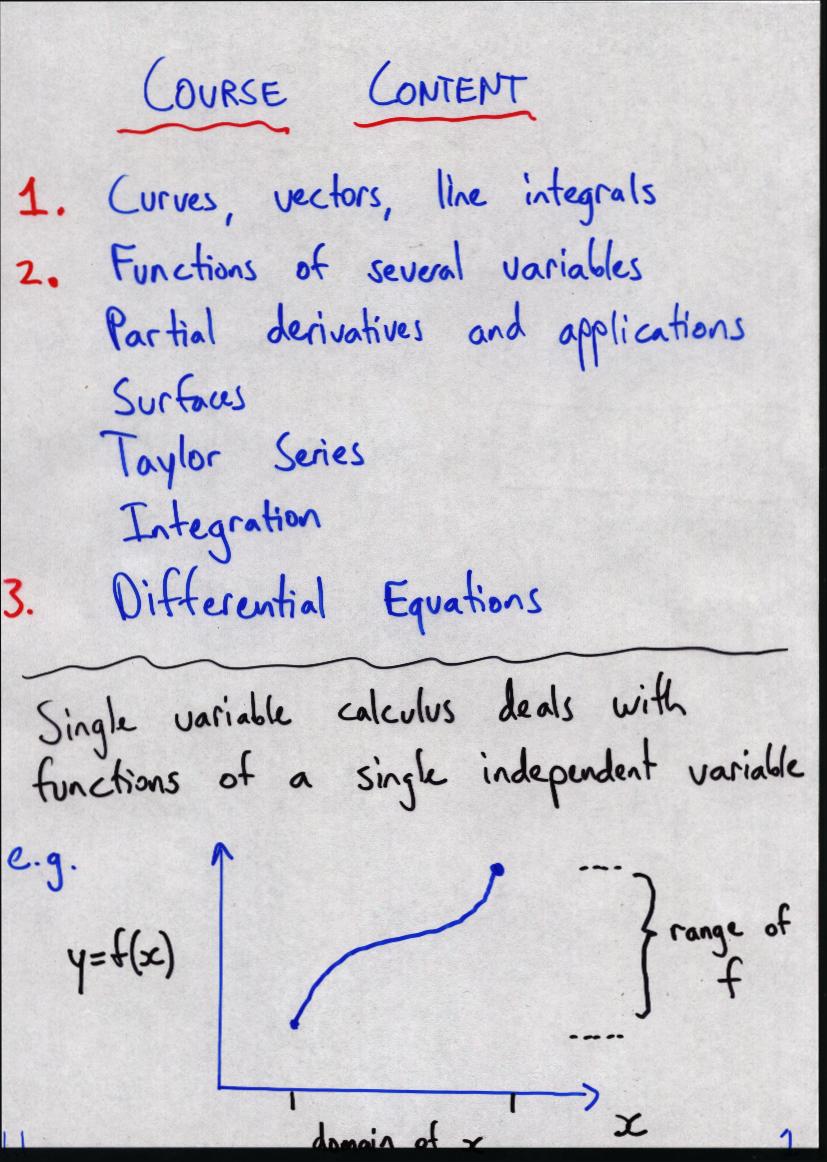 COURSE CONTENT
1. Curves, vectors, line integrals
2. Functions of several variables
Partial derivatives and applications
Surfaces
Taylor Series
Integration
3. Differential Equations
Single variable calculus deals with
functions of a single independent variable
e.g.
y=f(x)
range of
f
x
domain of x
1